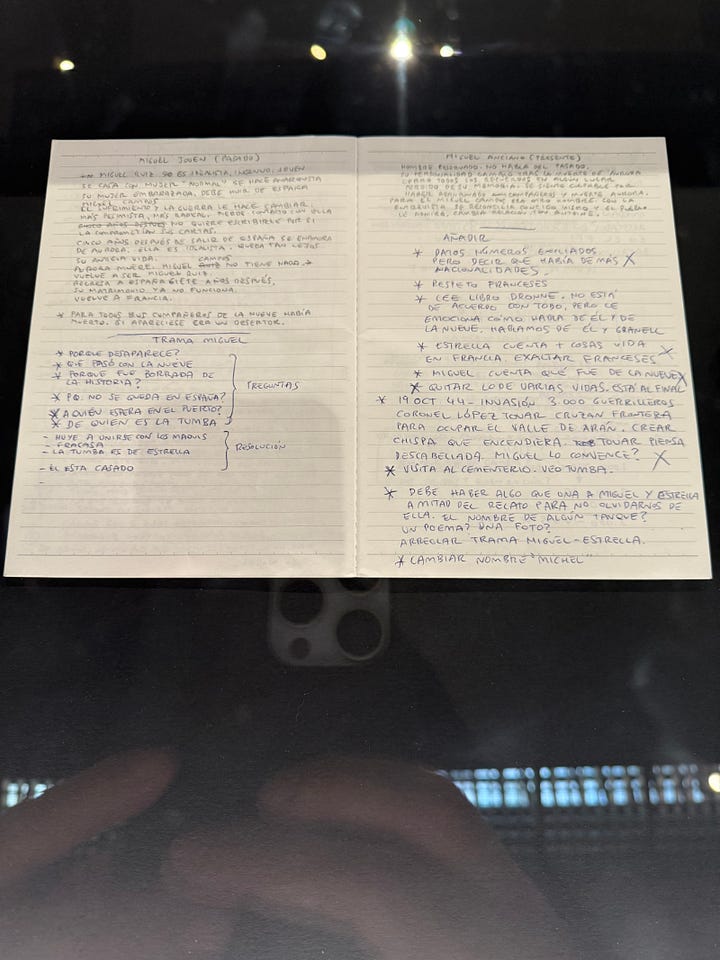 MIGUEL JOVEN (PASADO)
MIGUEL RUIZ. 20 ES IDEALISTA, INGENUO, JOVEN
SE CASA CON MUJER "NORMAL" SE HACE ANARQUISTA
SU MUJER EMBARAZADA, DEBE HUIR DE ESPAÑA
MIGUEL CAMPOS
EL SUFRIMIENTO Y LA GUERRA LE HACE CAMBIAR.
MÁS PESIMISTA, MÁS RADICAL, MENOS CONTACTO CON ELLA
NO QUIERE ESCRIBIRLE POR SI
LA COMPROMETÍAN SUS CARTAS.
CINCO AÑOS DESPUÉS DE SALIR DE ESPAÑA SE ENAMORA
DE AURORA. ELLA ES IDEALISTA. QUEDA TAN LEJOS
SU ANTIGUA VIDA.
CAMPOS
AURORA MUERE. MIGUEL RUIZ NO TIENE NADA →
VUELVE A SER MIGUEL RUIZ.
REGRESA A ESPAÑA SIETE AÑOS DESPUÉS,
SU MATRIMONIO YA NO FUNCIONA.
VUELVE A FRANCIA.
* PARA TODOS SUS COMPAÑEROS DE LA NUEVE HABÍA
MUERTO. SI APARECIESE ERA UN DESERTOR.
TRAMA MIGUEL
* PORQUE DESAPARECE?
* QUE PASÓ CON LA NUEVE
* PORQUE FUE BORRADA DE
LA HISTORIA?
* PQ. NO SE QUEDA EN ESPAÑA?
* A QUIÉN ESPERA EN EL PUERTO?
* DE QUIEN ES LA TUMBA
PREGUNTAS
- HUYE A UNIRSE CON LOS MAQUIS
- FRACASA
- LA TUMBA ES DE ESTRELLA
RESOLUCIÓN
- ÉL ESTA CASADO
-
MIGUEL ANCIANO (PRESENTE)
HOMBRE RESIGNADO. NO HABLA DEL PASADO.
SU PERSONALIDAD CAMBIÓ TRAS LA MUERTE DE AURORA
TODOS SUS RECUERDOS EN ALGÚN LUGAR
PERDIDO DE SU MEMORIA. SE SIENTE CULPABLE POR
HABER ABANDONADO COMPAÑEROS Y MUERTE AURORA.
PARA EL MIGUEL CAMPOS ERA OTRO HOMBRE. CON LA
SE RECONCILIA CONSIGO MISMO Y EL PUEBLO
LE ADMIRA. CAMBIA RELACIÓN CON ANTOINE.
AÑADIR
* DATOS NÚMEROS EXILIADOS
PERO DECIR QUE HABÍA DE MÁS X
NACIONALIDADES.
* RESPETO FRANCESES
* LEE LIBRO DRONNE. NO ESTÁ
DE ACUERDO CON TODO, PERO LE
EMOCIONA CÓMO HABLA DE ÉL Y DE
LA NUEVE. HABLAMOS DE ÉL Y GRANELL
* ESTRELLA CUENTA + COSAS VIDA
EN FRANCIA. EXALTAR FRANCESES X
* MIGUEL CUENTA QUÉ FUE DE LA NUEVE X
* QUITAR LO DE VARIAS VIDAS. ESTÁ AL FINAL
* 19 OCT 44 - INVASIÓN 3.000 GUERRILLEROS
CORONEL LÓPEZ TOVAR CRUZAN FRONTERA
PARA OCUPAR EL VALLE DE ARÁN. CREAR
CHISPA QUE ENCENDIERA. TOVAR PIENSA
DESCABELLADA. MIGUEL LO CONVENCE? X
* VISITA AL CEMENTERIO. VEO TUMBA.
* DEBE HABER ALGO QUE UNA A MIGUEL Y ESTRELLA
A MITAD DEL RELATO PARA NO OLVIDARNOS DE
ELLA. EL NOMBRE DE ALGÚN TANQUE?
UN POEMA? UNA FOTO?
ARREGLAR TRAMA MIGUEL-ESTRELLA.
* CAMBIAR NOMBRE "MICHEL"